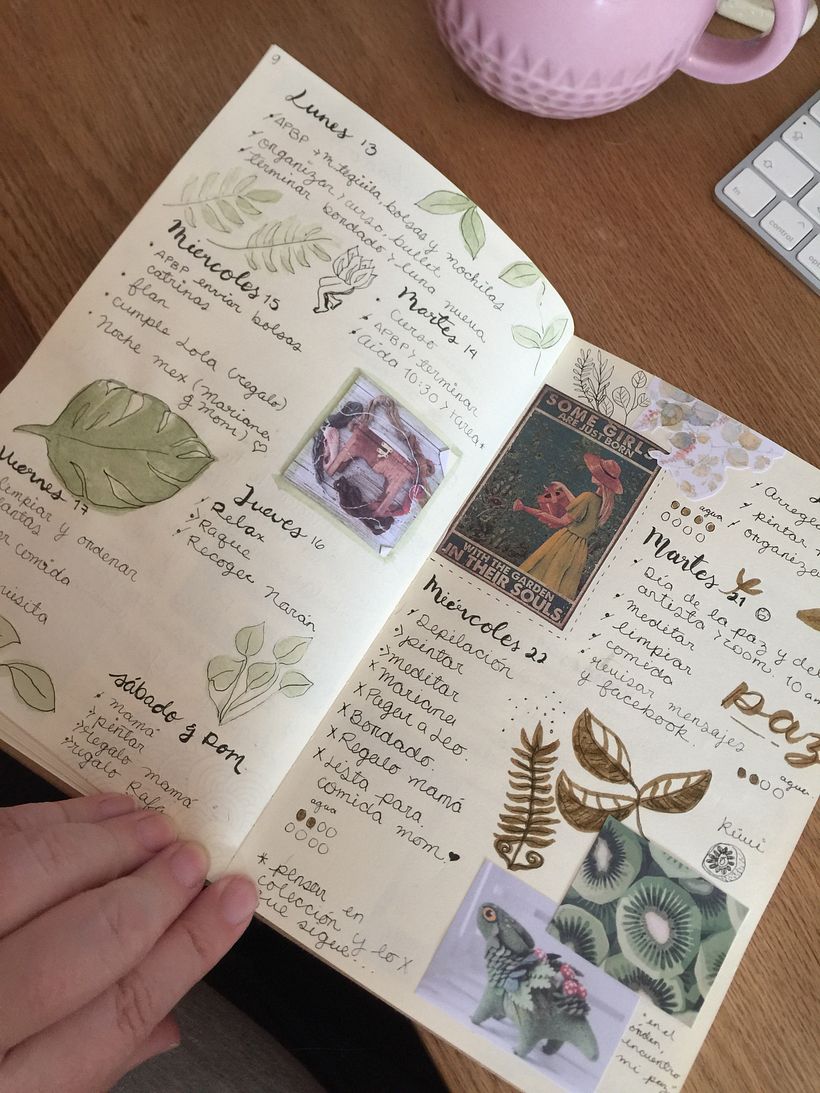 9
Lunes 13
APBP > m. tequila, bolsas y mochilas
organizar > curso, bullet
terminar bordado > luna nueva
Martes 14
• Curso
APBP > terminar
Aida 10:30 > tarea*
Miércoles 15
• APBP enviar bolsas
catrinas
• flan
• cumple Lola (regalo)
• Noche mex (Mariana
& mom) ♡
Jueves 16
Relax
>Raque
Recoger Narán
Viernes 17
limpiar y ordenar
plantas
comida
sábado & Dom
• mamá
> pintar
>regalo mamá
>regalo Rafa
SOME GIRLS
ARE JUST BORN
WITH THE GARDEN
IN THEIR SOULS
pintar
organizar
agua
Martes 21
• Día de la paz y del
artista > zoom. 10 am
meditar
limpiar
comida
• revisar mensajes
y facebook.
paz
agua
Miércoles 22
Depilación
>pintar
>meditar
x Mariana
x Pagar a Leo.
x Bordado
x Regalo mamá
x Lista para
comida mom. ♥
agua
* pensar en
colección y lo x
que sigue...
Kiwi
• en el
orden,
encuentro
mi paz
fn
control